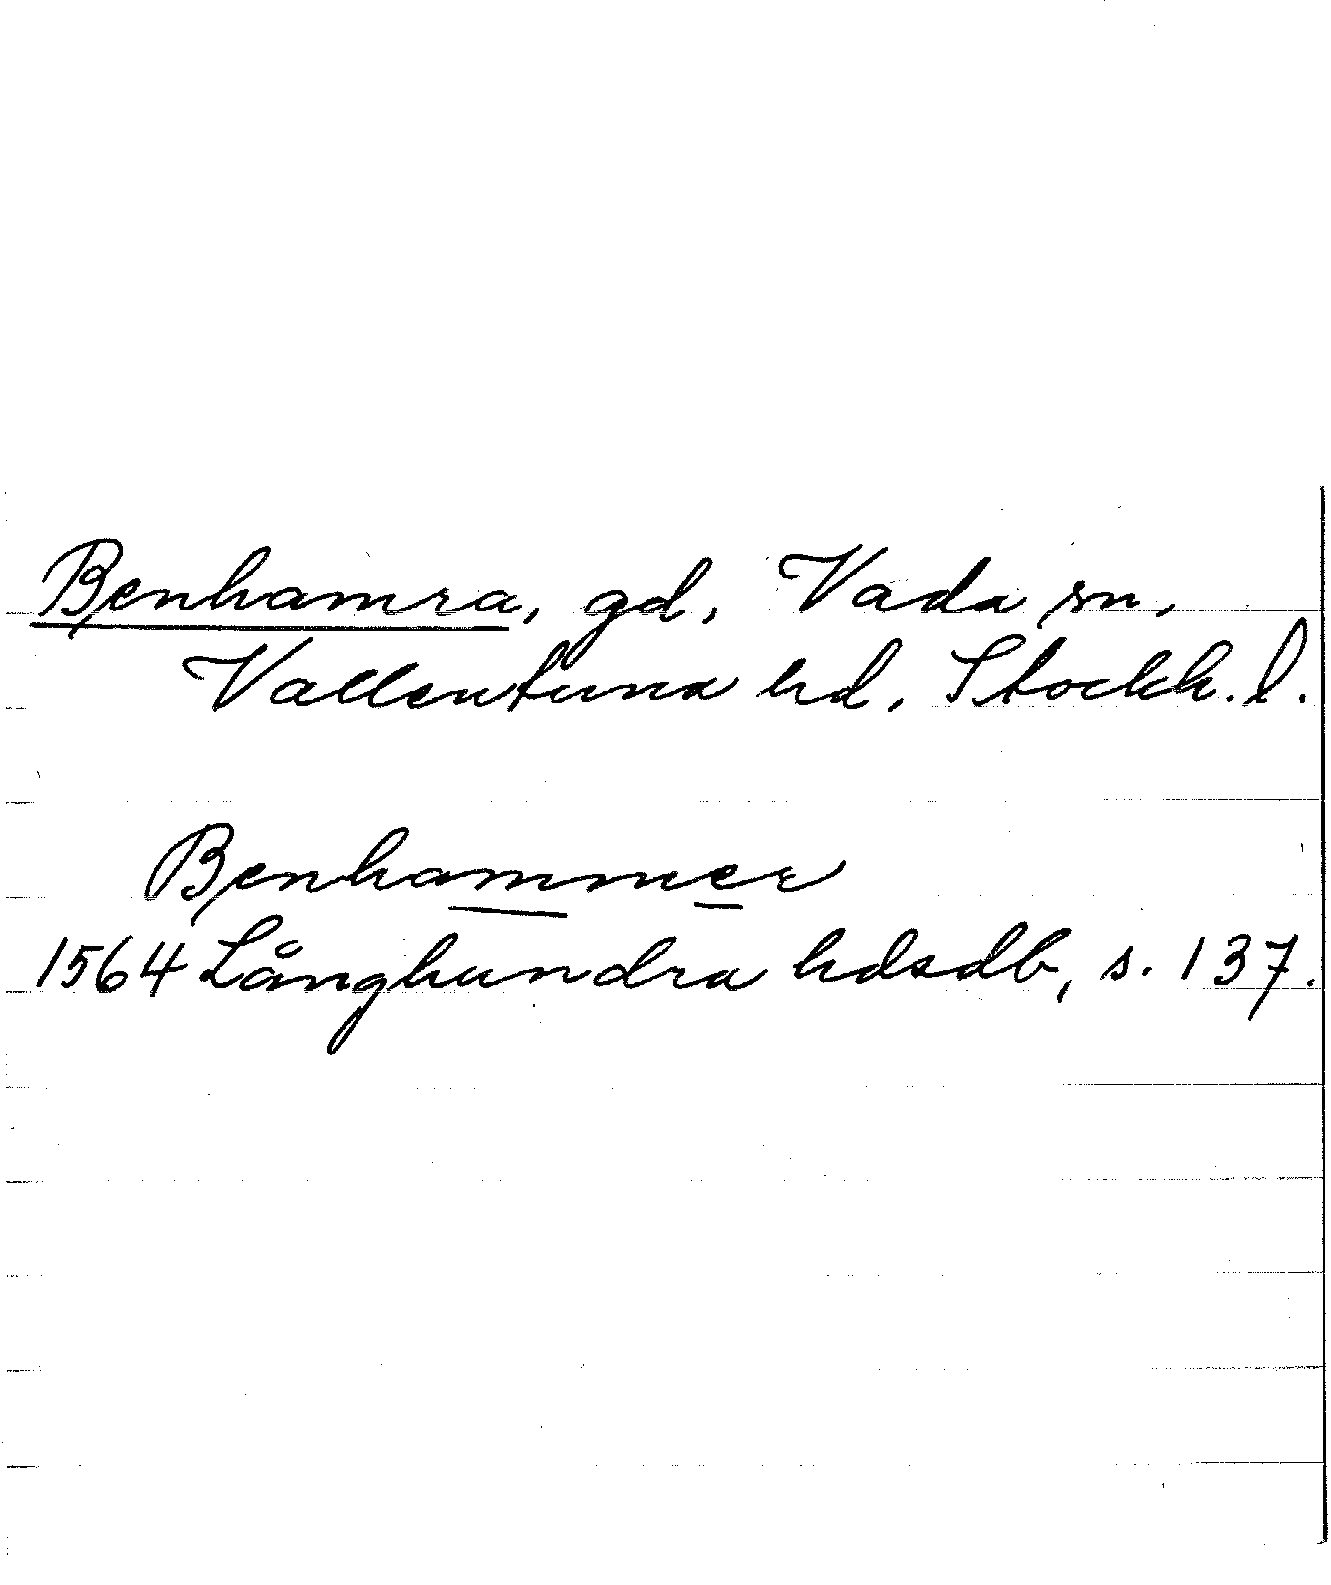 Benhamra, gd, Vada sn,
Vallentuna hd, Stockh. l.
Benhammer
1564 Långhundra hdsdb, s. 137.